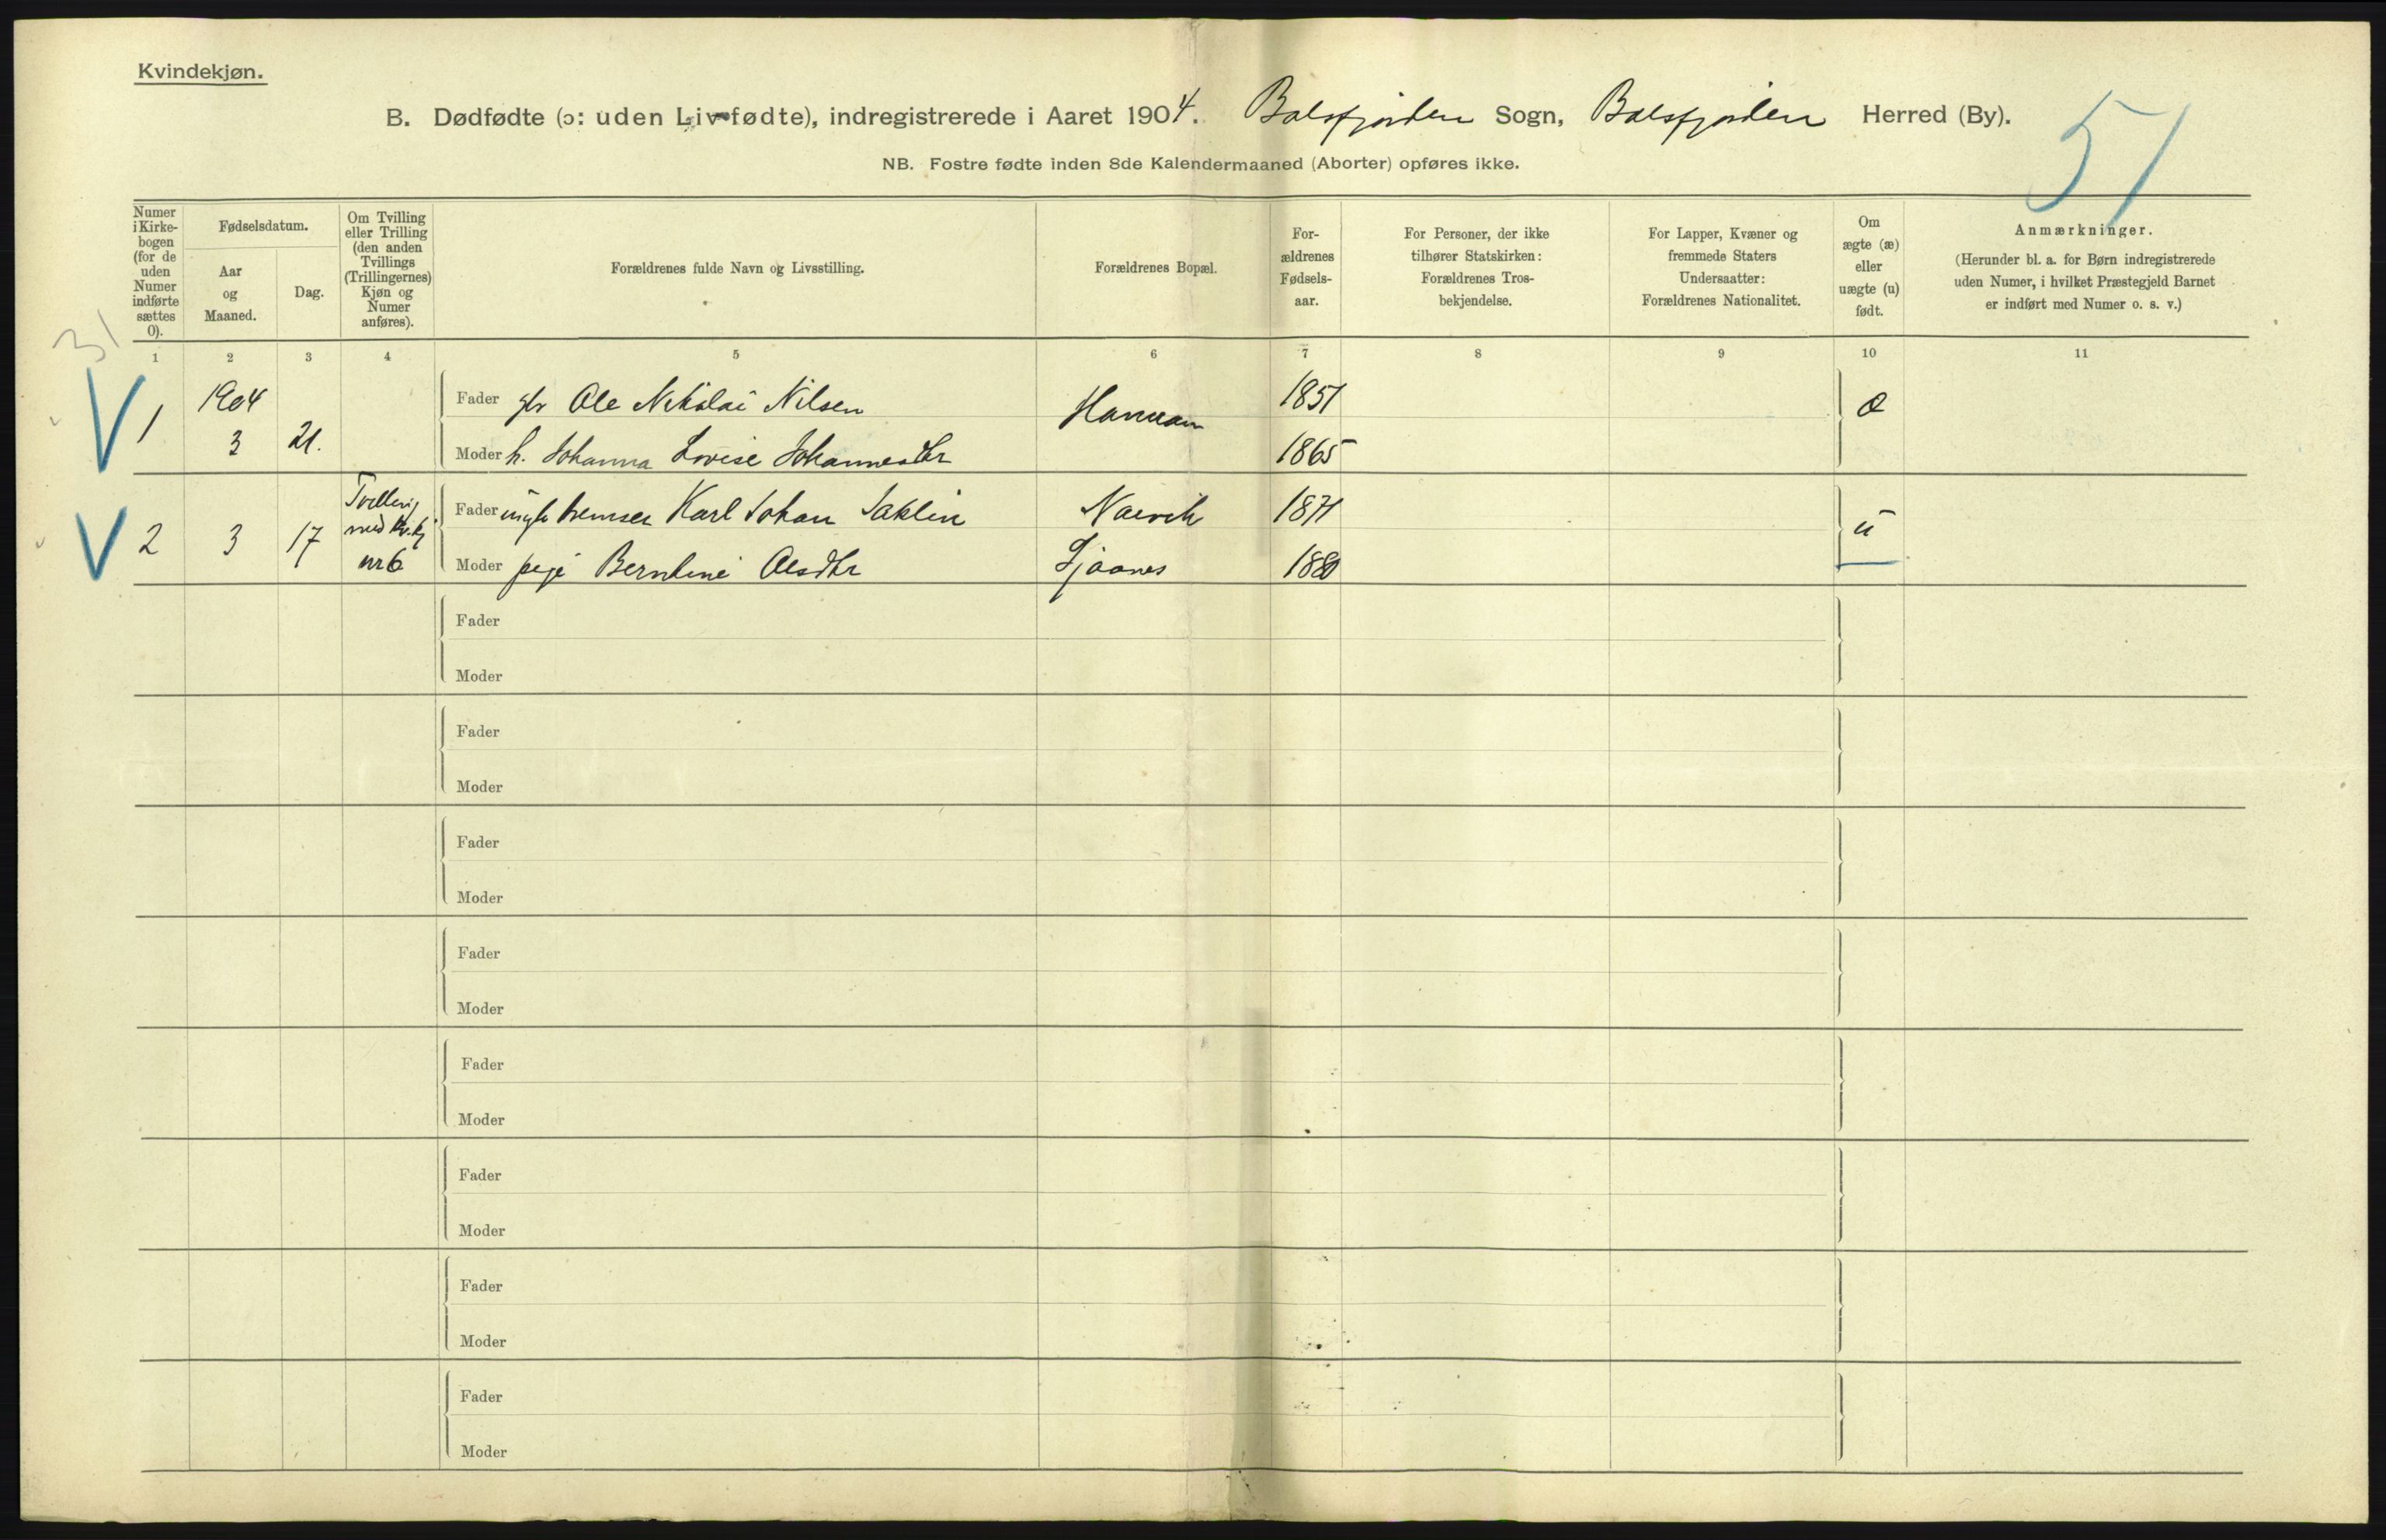 Kvindekjøn.
B. Dødfødte (ɔ: uden Liv fødte), indregistrerede i Aaret 1904. Balsfjorden Sogn, Balsfjorden Herred (By).
51
NB. Fostre fødte inden 8de Kalendermaaned (Aborter) opføres ikke.
Numer
i Kirke-
bogen
(for de
uden
Numer
indførte
sættes
0).
Fødselsdatum.
Aar
og
Maaned.
Dag.
Om Tvilling
eller Trilling
(den anden
Tvillings
(Trillingernes)
Kjøn og
Numer
anføres).
Forældrenes fulde Navn og Livsstilling.
Forældrenes Bopæl.
For-
ældrenes
Fødsels-
aar.
For Personer, der ikke
tilhører Statskirken:
Forældrenes Tros-
bekjendelse.
For Lapper, Kvæner og
fremmede Staters
Undersaatter:
Forældrenes Nationalitet.
Om
ægte (æ)
eller
uægte (u)
født.
Anmærkninger.
(Herunder bl. a. for Børn indregistrerede
uden Numer, i hvilket Præstegjeld Barnet
er indført med Numer o. s. v.)
31
1 2 3 4 5 6 7 8 9 10 11
1904 Fader gbr Ole Nikolai Nilsen 1851 æ
1 3 21. Moder h. Johanna Lovise Johannesdtr 1865
Tvilling Fader Karl Johan Narvik 1871
2 3 17 med u
nr 6 Moder pige Berntine Olesdtr 1880
Fader
Moder
Fader
Moder
Fader
Moder
Fader
Moder
Fader
Moder
Fader
Moder
Fader
Moder
Fader
Moder